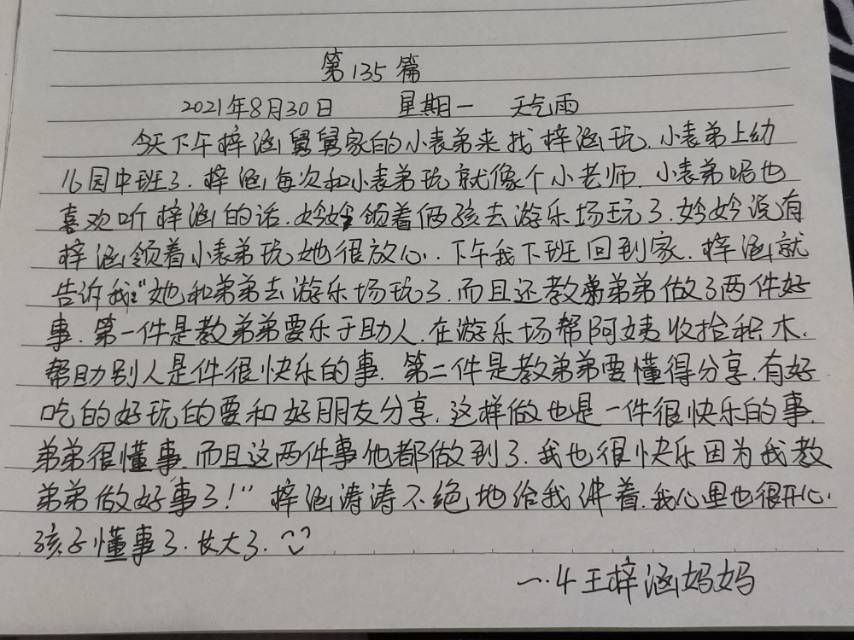 第135篇
2021年8月30日 星期一 天气雨
今天下午梓涵舅舅家的小表弟来找梓涵玩.小表弟上幼
儿园中班了.梓涵每次和小表弟玩就像个小老师.小表弟唱也
喜欢听梓涵的话.妗妗领着俩孩去游乐场玩了.妗妗说有
梓涵领着小表弟玩她很放心.下午我下班回到家.梓涵就
告诉我:"她和弟弟去游乐场玩了.而且还教弟弟做了两件好
事.第一件是教弟弟要乐于助人.在游乐场帮阿姨收拾积木.
帮助别人是件很快乐的事.第二件是教弟弟要懂得分享.有好
吃的好玩的要和好朋友分享.这样做也是一件很快乐的事.
弟弟很懂事.而且这两件事他都做到了.我也很快乐因为我教
弟弟做好事了!"梓涵涛涛不绝地给我讲着.我心里也很开心.
孩子懂事了.长大了.
一.4王梓涵妈妈